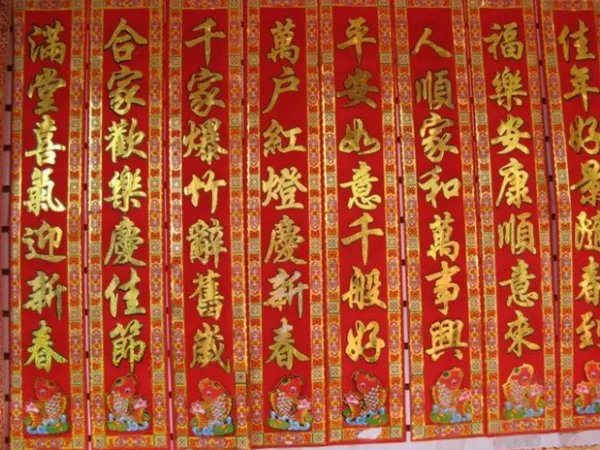 佳年好景隨春到
福樂安康順意來
人順家和萬事興
平安如意千般好
萬户紅燈慶新春
千家爆竹辭舊歲
合家歡樂慶佳節
滿堂喜氣迎新春